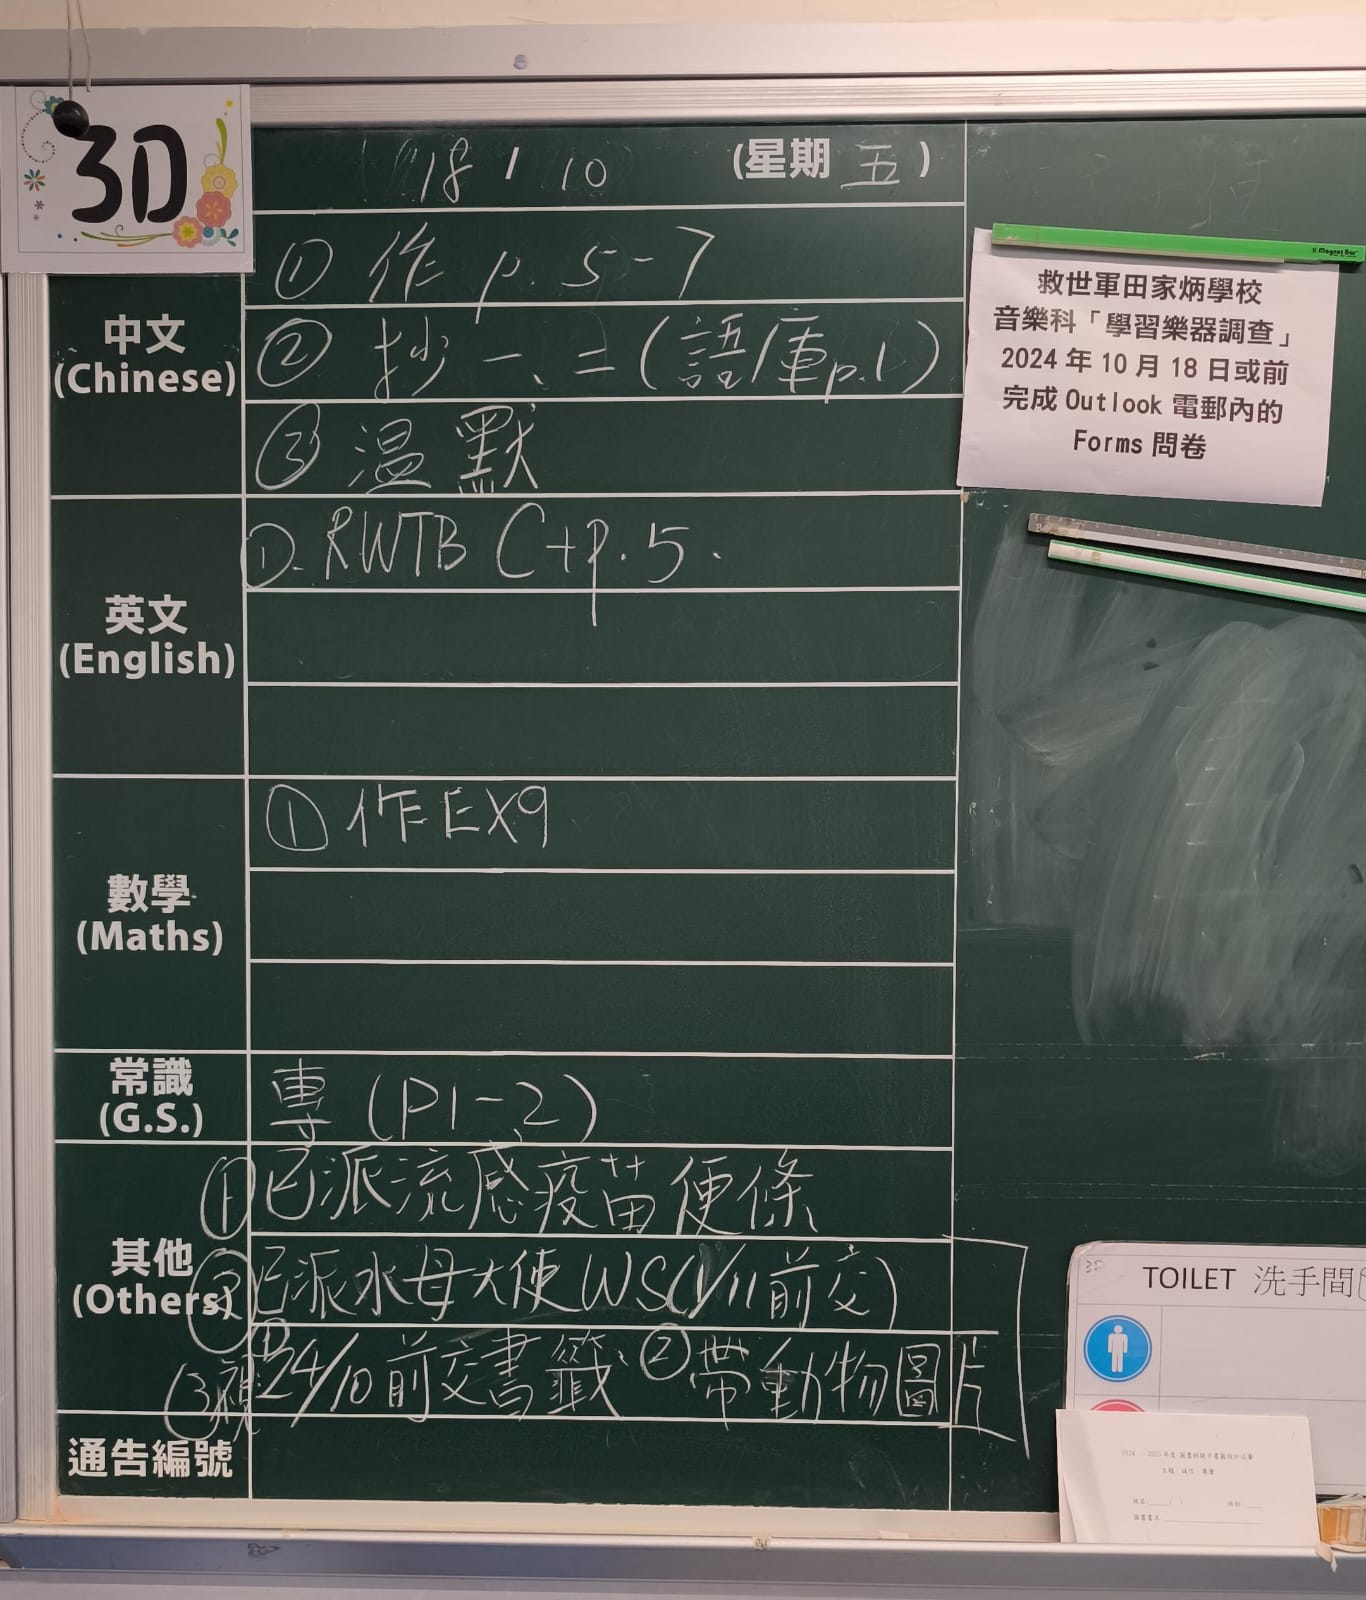 3D
18 / 10 (星期 五)
中文
(Chinese)
① 作 p. 5-7
② 抄一、二(語庫p.1)
③ 溫默
英文
(English)
①. RWTB C+p. 5.
數學
(Maths)
① 作EX9
常識
(G.S.)
專 (P1-2)
其他
(Others)
① 已派流感疫苗便條
② 已派水母大使WS(1/11前交)
③視 ①24/10前交書籤 ②帶動物圖片
通告編號
救世軍田家炳學校
音樂科「學習樂器調查」
2024年10月18日或前
完成Outlook電郵內的
Forms問卷
Magnet Bar
3D
TOILET 洗手間
2024 - 2025 年度 圖書科親子書籤設計比賽
主題:
姓名:____( ) 班別:____
圖書書名: